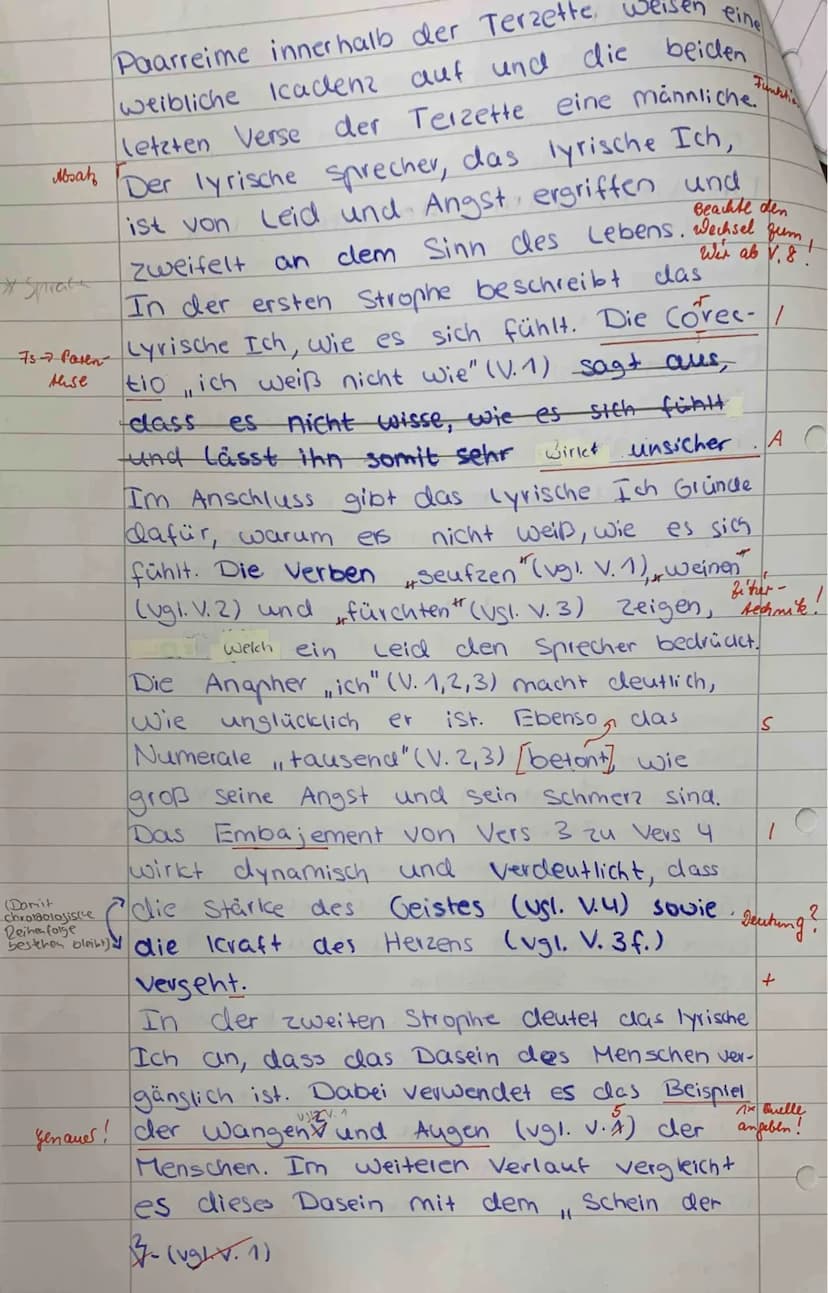 Paarreime innerhalb der Terzette weisen eine
weibliche Kadenz auf und die beiden
letzten Verse der Terzette eine männliche.
Funktio
Absatz
Der lyrische Sprecher, das lyrische Ich,
ist von Leid und Angst ergriffen und
zweifelt an dem Sinn des Lebens.
Beachte den
Wechsel zum
Wir ab V. 8!
In der ersten Strophe beschreibt das
lyrische Ich, wie es sich fühlt. Die Correc- /
tio „ich weiß nicht wie" (V.1) sagt aus,
Ts → Paren-
these
dass es nicht wisse, wie es sich fühlt
und lässt ihn somit sehr wirkt unsicher. A
Im Anschluss gibt das lyrische Ich Gründe
dafür, warum es nicht weiß, wie es sich
fühlt. Die Verben „seufzen" (vgl. V.1), „weinen"
(vgl. V.2) und „fürchten" (vgl. V.3) zeigen,
Zitier-
technik!
welch ein Leid den Sprecher bedrückt.
Die Anapher „ich" (V. 1,2,3) macht deutlich,
wie unglücklich er ist. Ebenso das S
Numerale „tausend" (V. 2,3) [betont], wie
groß seine Angst und sein Schmerz sind.
Das Embajement von Vers 3 zu Vers 4 /
wirkt dynamisch und verdeutlicht, dass
die Stärke des Geistes (vgl. V.4) sowie
Deutung?
(Damit
chronologische
Reihenfolge
bestehen bleibt)
die Kraft des Herzens (vgl. V. 3f.)
vergeht. +
In der zweiten Strophe deutet das lyrische
Ich an, dass das Dasein des Menschen ver-
gänglich ist. Dabei verwendet es das Beispiel
genauer!
der Wangen 2 und Augen (vgl. V. 5) der
1x Quelle
angeben!
Menschen. Im weiteren Verlauf vergleicht
es dieses Dasein mit dem „Schein der
2 (vgl. V. 1)